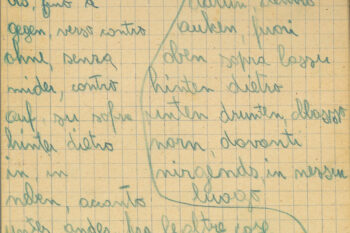 fino a
gegen, verso contro
ohne, senza
wider, contro
auf, su sopra
hinter dietro
in, in
neben, accanto
außen, fuori
oben sopra lassu
hinten dietro
unten drunten,
vorn, davanti
nirgends, in nessun
luogo
unter ander fra le altre cose